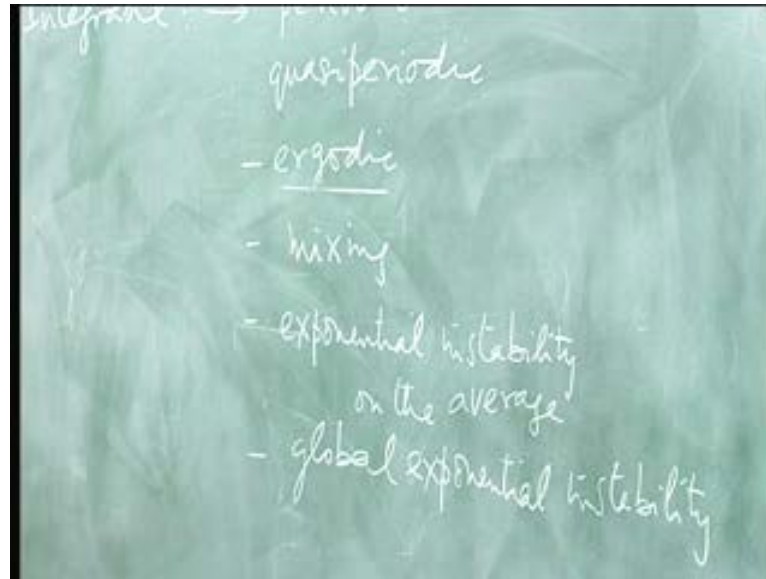 Integrable : →
quasiperiodic
- ergodic
- mixing
- exponential instability
on the average
- global exponential instability